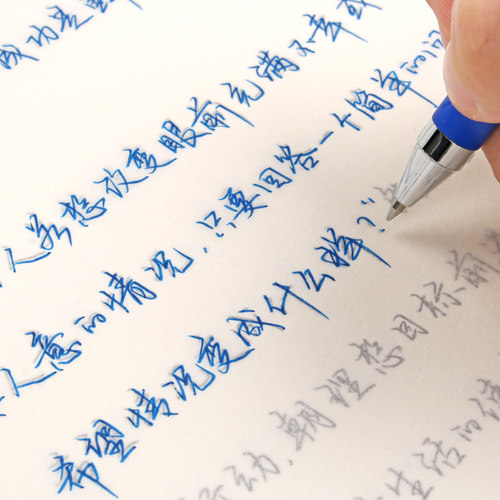 成功是
人若想改变眼前充满不幸或
人意的情况,只要回答一个简单的问
希望情况变成什么样?”
动,朝理想目标前
生活的使